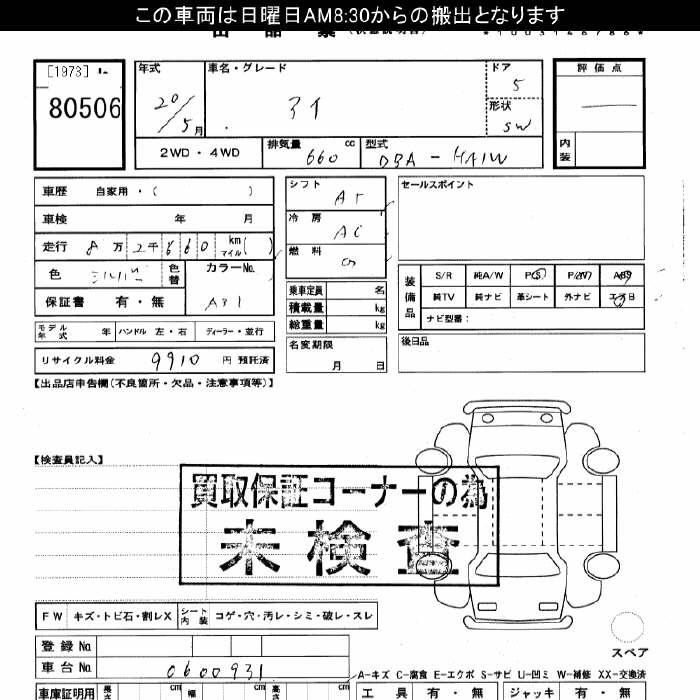 この車両は日曜日AM8:30からの搬出となります
[1973]
80506
年式
20/5月
車名・グレード
アイ
ドア
5
形状
SW
評価点
内装
2WD・4WD
排気量 660 cc
型式 DBA-HA1W
車歴 自家用・( )
車検 年 月
走行 8万2千660 km マイル( )
色 シルバー 色替
カラーNo. A31
保証書 有・無
モデル年式 年 ハンドル 左・右 ディーラー・並行
リサイクル料金 9910 円 預託済
シフト AT
冷房 AC
燃料
乗車定員 名
積載量 kg
総重量 kg
名変期限
月 日
セールスポイント
装備品
S/R 純A/W P(S) P/W ABS
純TV 純ナビ 革シート 外ナビ エアB
ナビ型番:
後日品
【出品店申告欄(不良箇所・欠品・注意事項等)】
【検査員記入】
買取保証コーナーの為
未検査
FW キズ・トビ石・割レX シート内装 コゲ・穴・汚レ・シミ・破レ・スレ
スペア
登録No.
車台No. 0600931
A-キズ C-腐食 E-エクボ S-サビ U-凹ミ W-補修 XX-交換済
車庫証明用 長さ cm 幅 cm 高さ cm
工具 有・無 ジャッキ 有・無